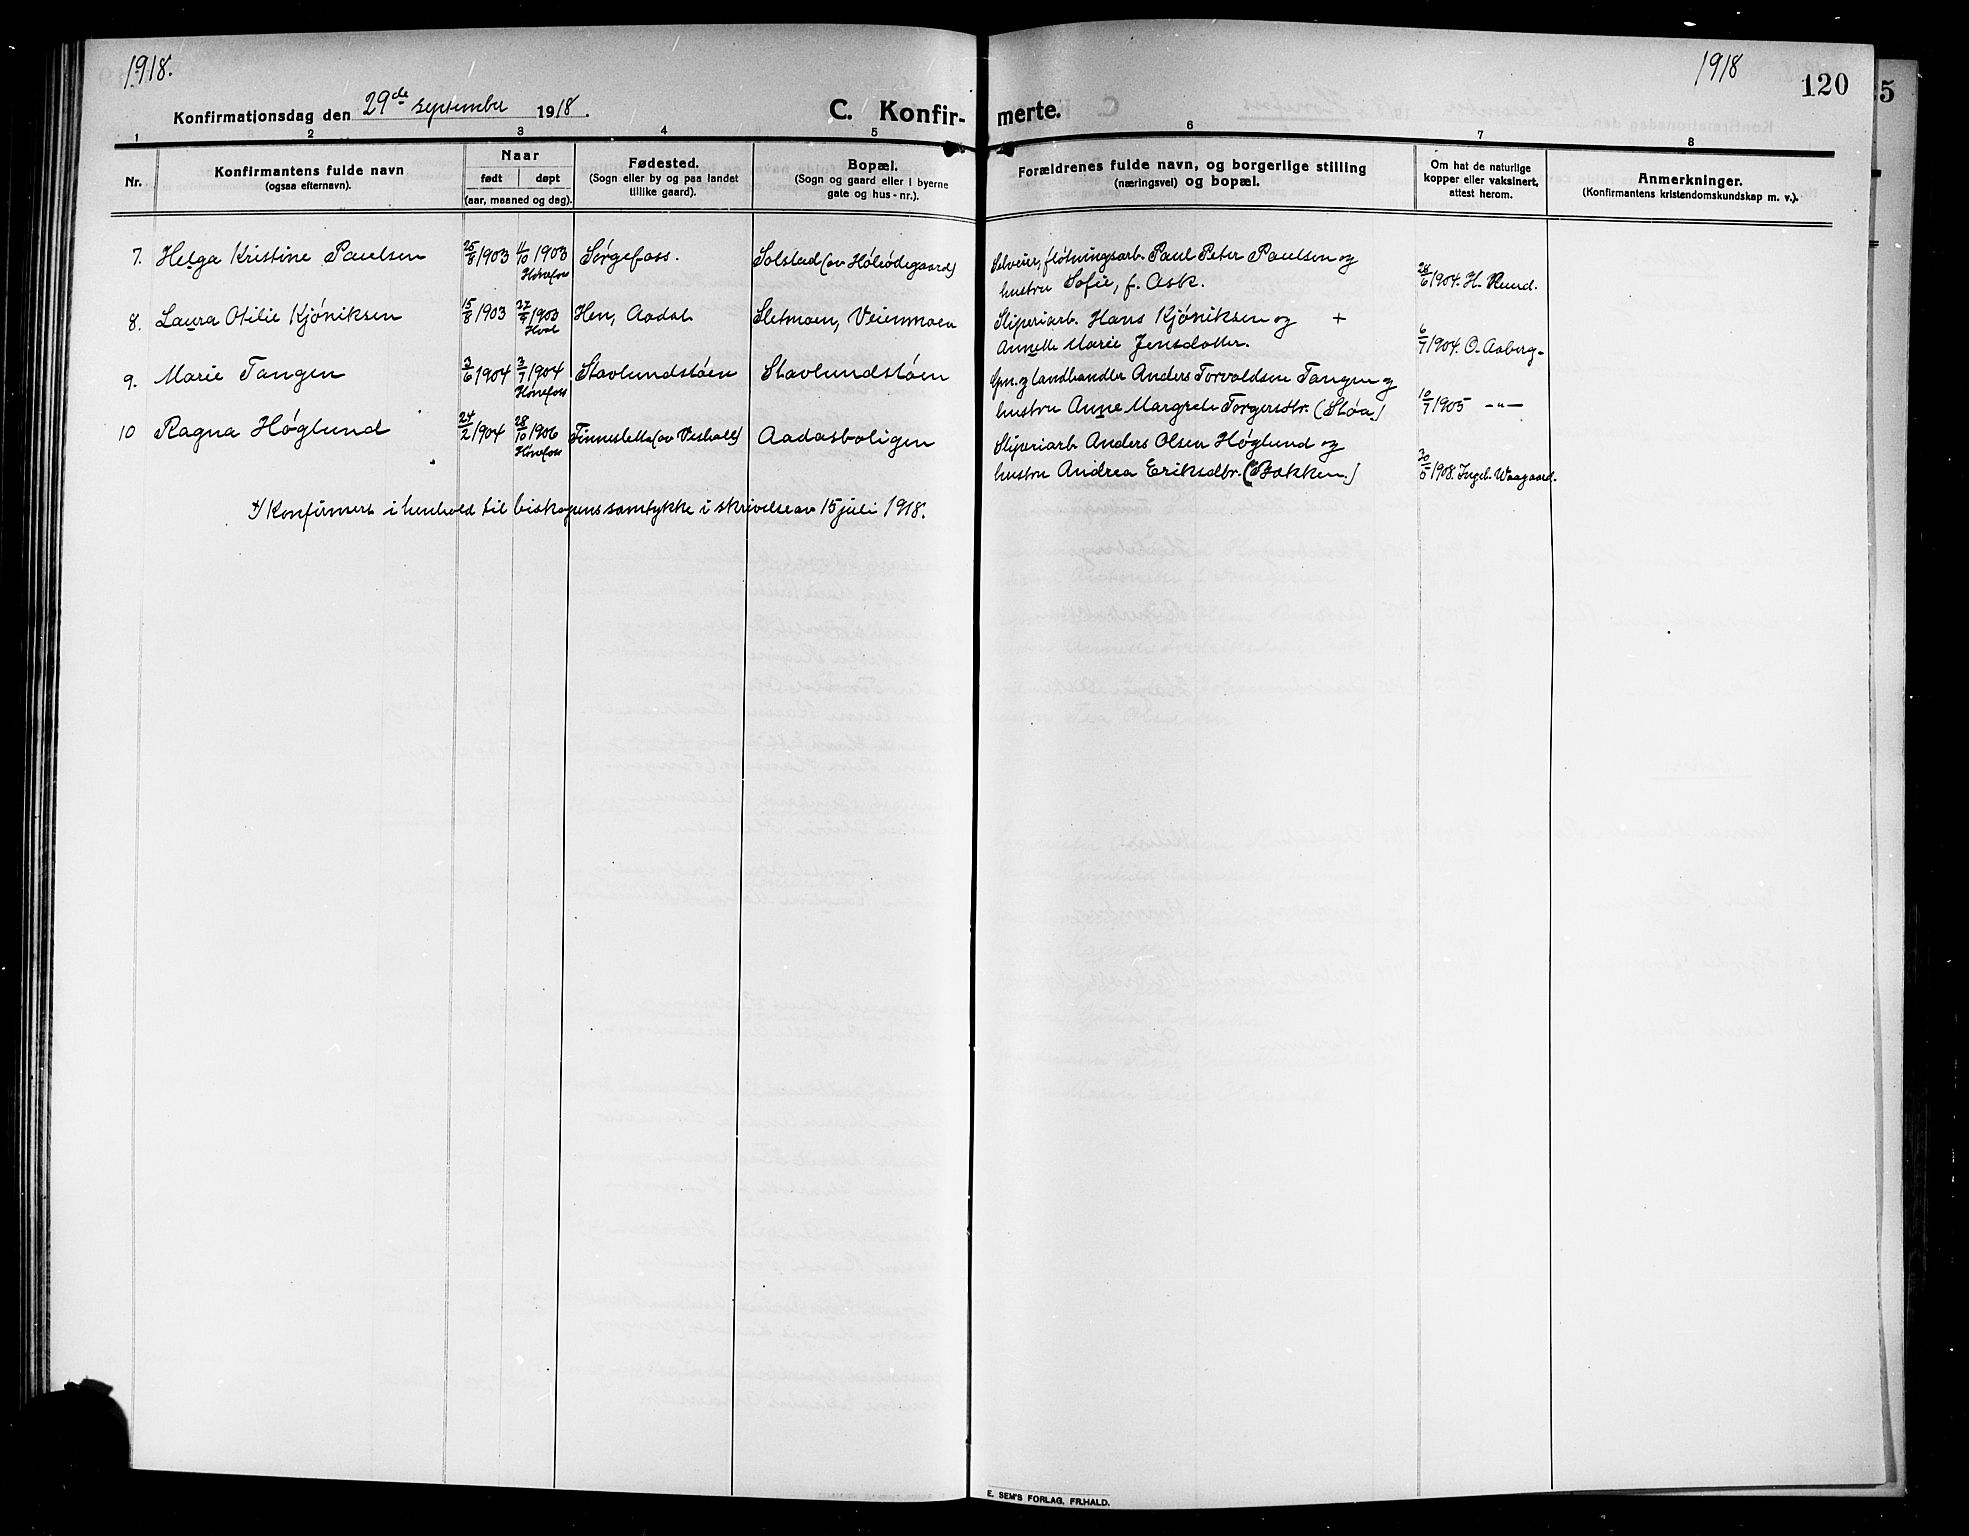 1918.
1918
120
5
Konfirmationsdag den 29de september 1918.
C. Konfir-
merte.
1 2 3 4 5 6 7 8
Nr.
Konfirmantens fulde navn
(ogsaa efternavn).
Naar
født døpt
(aar, maaned og dag).
Fødested.
(Sogn eller by og paa landet
tillike gaard).
Bopæl.
(Sogn og gaard eller i byerne
gate og hus-nr.).
Forældrenes fulde navn, og borgerlige stilling
(næringsvei) og bopæl.
Om hat de naturlige
kopper eller vaksinert,
attest herom.
Anmerkninger.
(Konfirmantens kristendomskundskap m. v.).
7. Helga Kristine Paulsen 25/8 1903 11/10 1903 Hønefoss Sørgefoss. Solstad (av Hølsødegaard) Selveier, fløtningsarb. Paul Peter Paulsen og
hustru Sofie, f. Ask. 28/6 1904. H. Ruud.
8. Laura Otilie Kjøniksen 15/8 1903 27/9 1903 Hval Hen, Aadal Sletmoen, Veienmoen Sliperiarb. Hans Kjøniksen og +
Annette Marie Jensdatter. 6/7 1904. O. Aaberg-
9. Marie Tangen 3/6 1904 3/7 1904 Hønefoss Stavlundstøen Stavlundstøen Gm. og landhandler Anders Torvaldsen Tangen og
hustru Anne Margrete Torgersdtr. (Støa) 10/7 1905 -"-
10 Ragna Høglund 24/2 1904 28/10 1906 Hønefoss Finnesletta (av Veshall) Aadasboligen Sliperiarb Anders Olsen Høglund og
hustru Andrea Eriksdtr. (Bakken.) 20/5 1908. Ingeb. Waagaard.
+/ Konfirmert i henhold til biskopens samtykke i skrivelse av 15 juli 1918.
E. SEM'S FORLAG, FR.HALD.